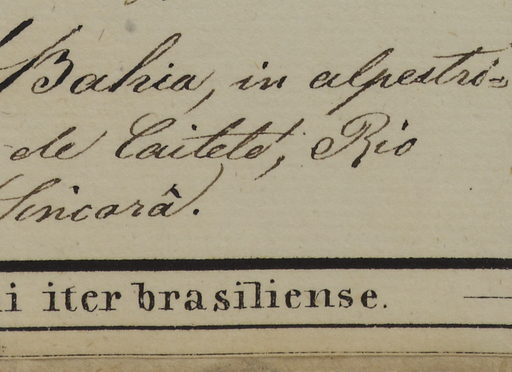 Bahia, in alpestri=
de Caiteté, Rio
Sincorâ.
i iter brasiliense.